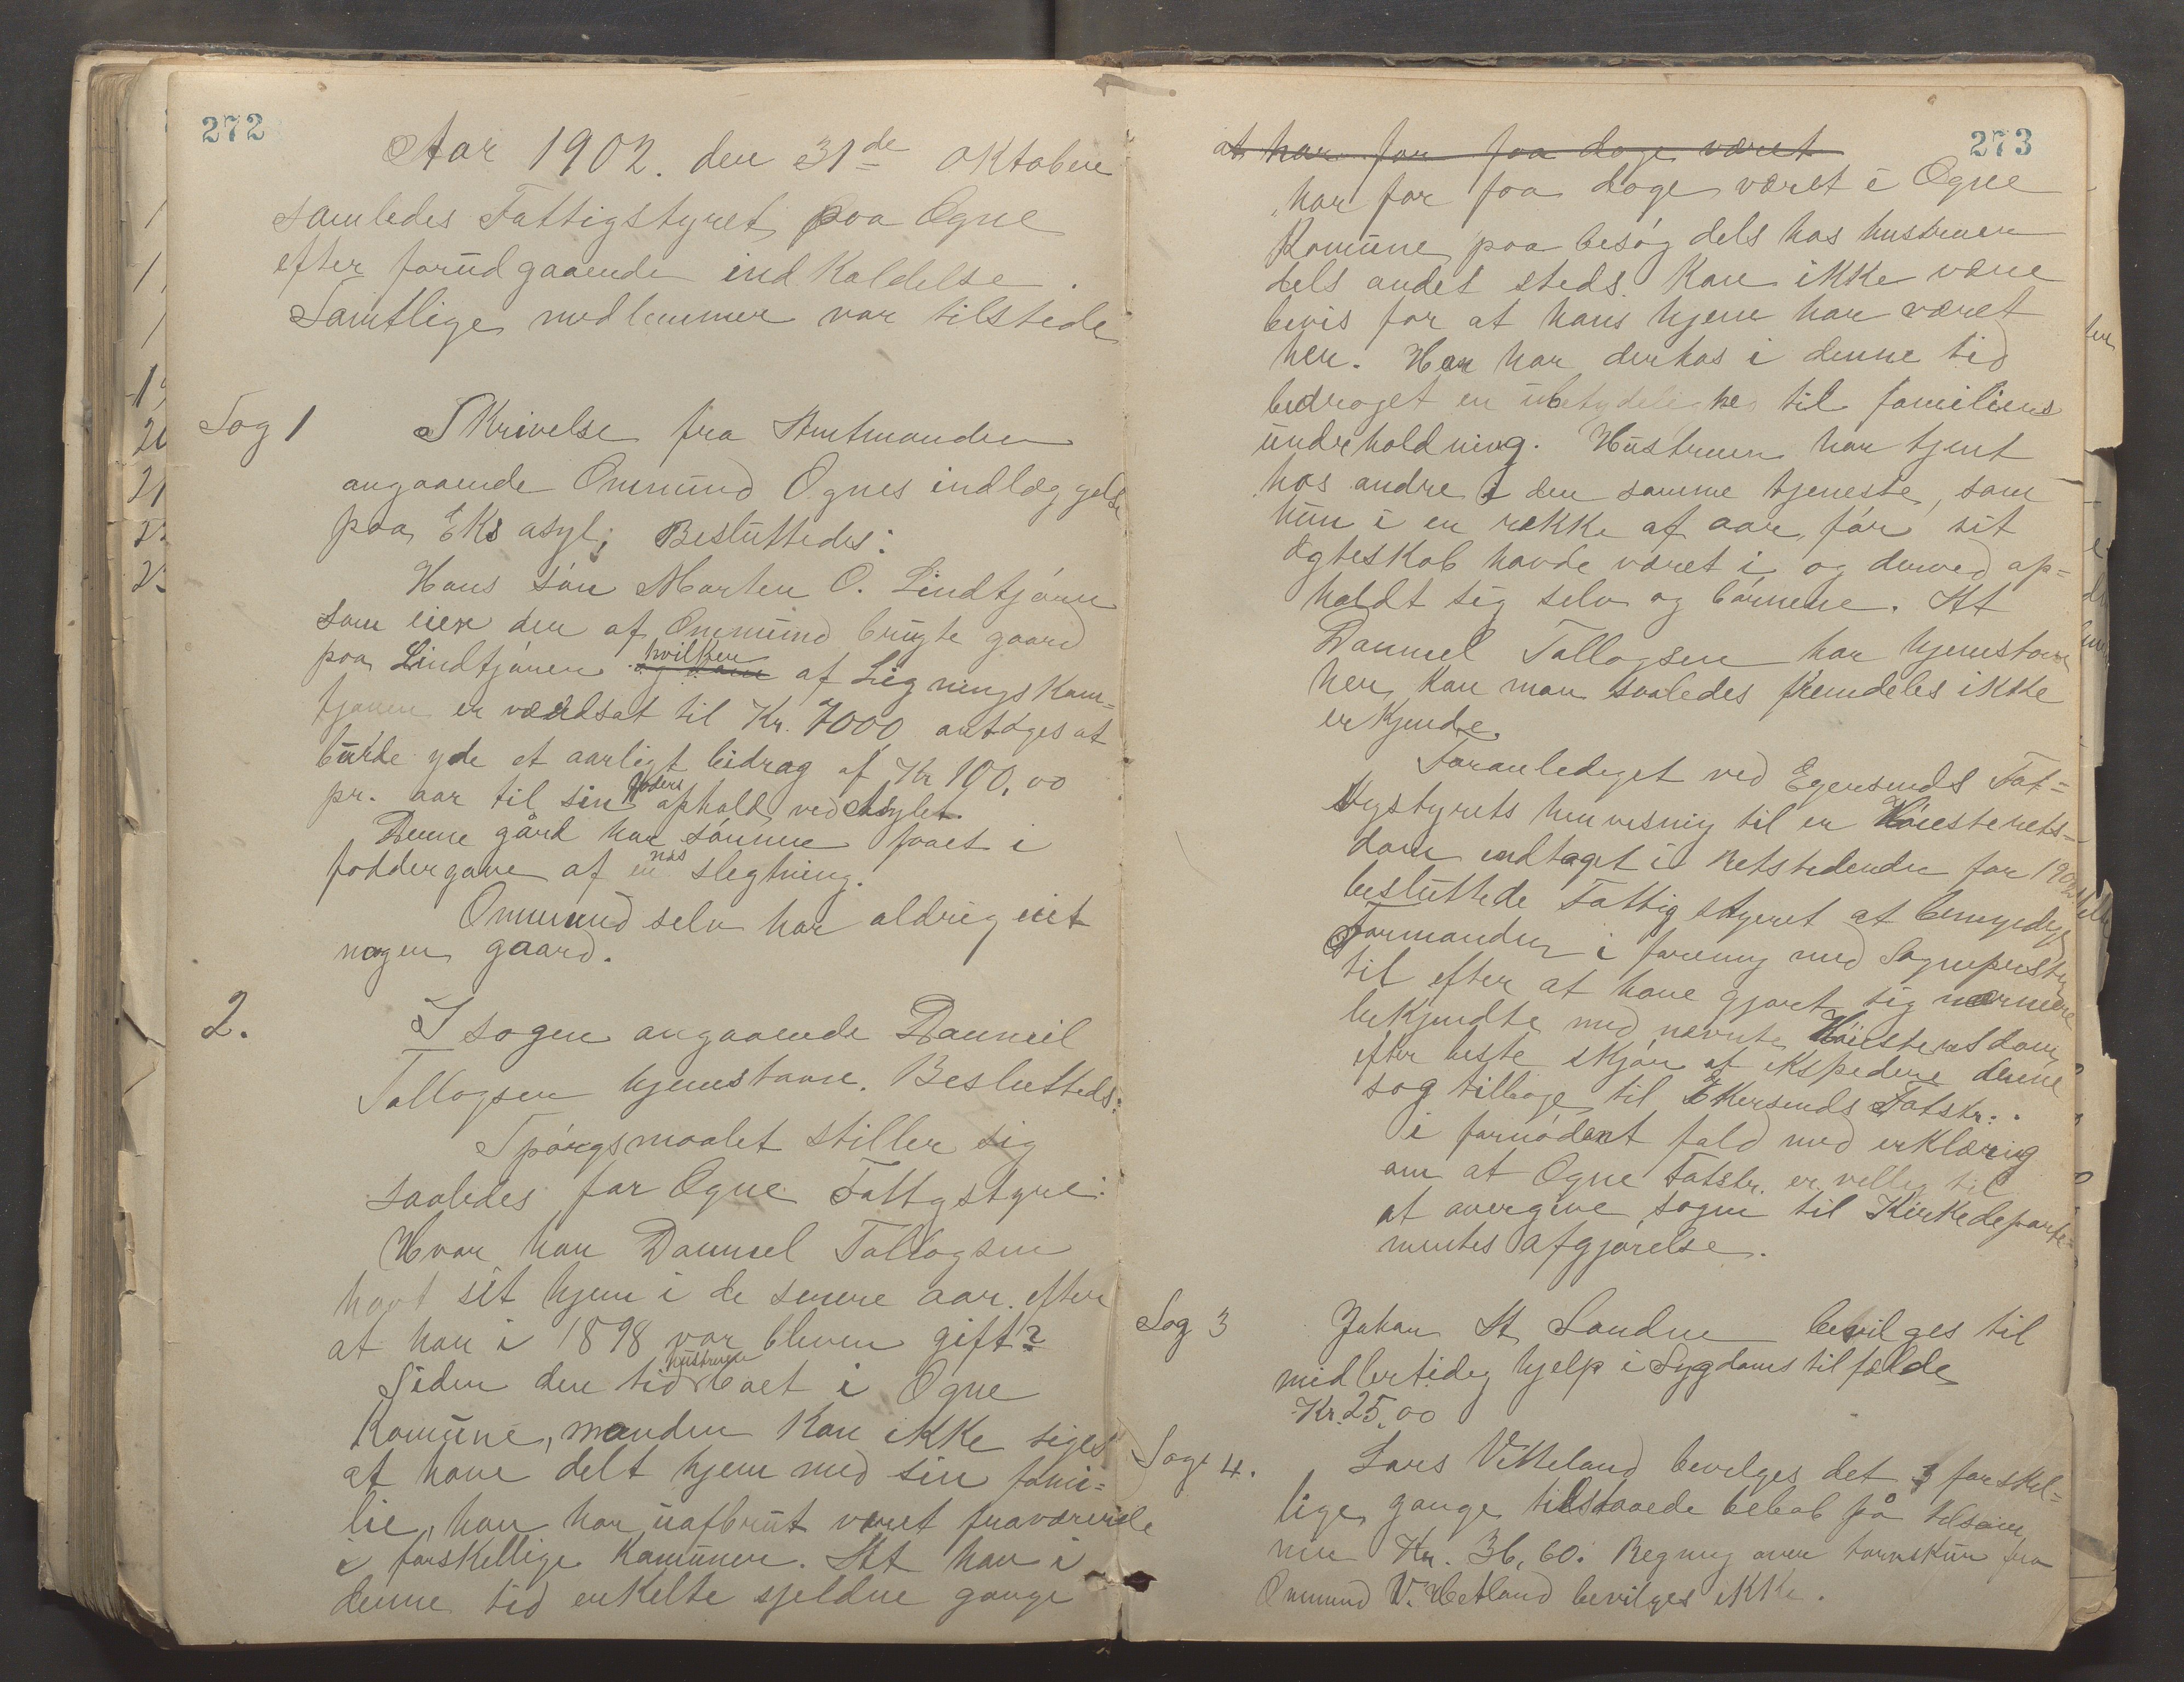 272
Aar 1902. den 31de oktober
samledes Fattigstyret paa Ogne
efter forudgaaende indkaldelse.
Samtlige medlemmer var tilstede
Sag 1 Skrivelse fra Amtmanden
angaaende Ommund Ognes indlæggelse
paa Eks asyl; Besluttedes:
Hans søn Morten O. Lindtjørn
som eier den af Ommund brugte gaard
paa Lindtjønen hvilken af Ligningskom=
tjonen er værdsat til Kr. 7000 antoges at
burde yde et aarligt bidrag af Kr 100,00
pr. aar til sin faders ophold ved Asylet.
Denne gård har sønnen faaet i
foddergave af en nær slegtning.
Ommund selv har aldrig eiet
nogen gaard.
2. I sagen angaaende Danniel
Tollagsen hjemstavn. Besluttedes:
Spørgsmaalet stiller sig
saaledes for Ogne Fattgstyre:
Hvor har Danniel Tollagsen
havt sit hjem i de senere aar. efter
at han i 1898 var bleven gift?
Siden den tid har hustruen boet i Ogne
Komune, manden kan ikke siges
at have delt hjem med sin fami=
lie, han har uafbrut været fraværende
i forskellige Komuner. At han i
denne tid enkelte sjeldne gange
273
at har for faa dage været
har for faa dage været i Ogne
Komune paa besøg dels hos hustruen
dels andet steds. kan ikke være
bevis for at hans hjem har været
her. Han har derhos i denne tid
bedraget en ubetydelighe til familiens
underholdning. Hustruen har tjent
hos andre i den samme tjeneste, som
hun i en række af aar, før sit
ægteskab havde været i og derved op=
holdt sig selv og børnene. At
Danniel Tollagsen har hjemstavn
her, kan man saaledes fremdeles ikke
erkjende.
Foranlediget ved Egersunds Fat=
tigstyrets henvisning til en Høiesterets=
dom indtaget i Retstidenden for 1902
besluttede Fattigstyret at bemyndige
Formanden i forening med Sogneprsten
til efter at have gjort sig nærmere
bekjendte med nævnte Høiesteretsdom
efter beste skjøn at ekspedere denne
sag tilbage til Ekersunds Fatstr..
i fornødent fald med erklæring
om at Ogne Fatstr. er villig til
at overgive sagen til Kirkedeparte=
mentes afgjørelse.
Sag 3 Johan A Sandve bevilges til
midlertideg hjelp i Sygdoms tilfælde
Kr. 25,00
Sag 4. Lars Vetteland bevelges det 3 forskel=
lige gange tilstaaede beløb på tilsam
men Kr. 36,60. Regning over barnskur fra
Ommund V. Hetland bevilges ikke.